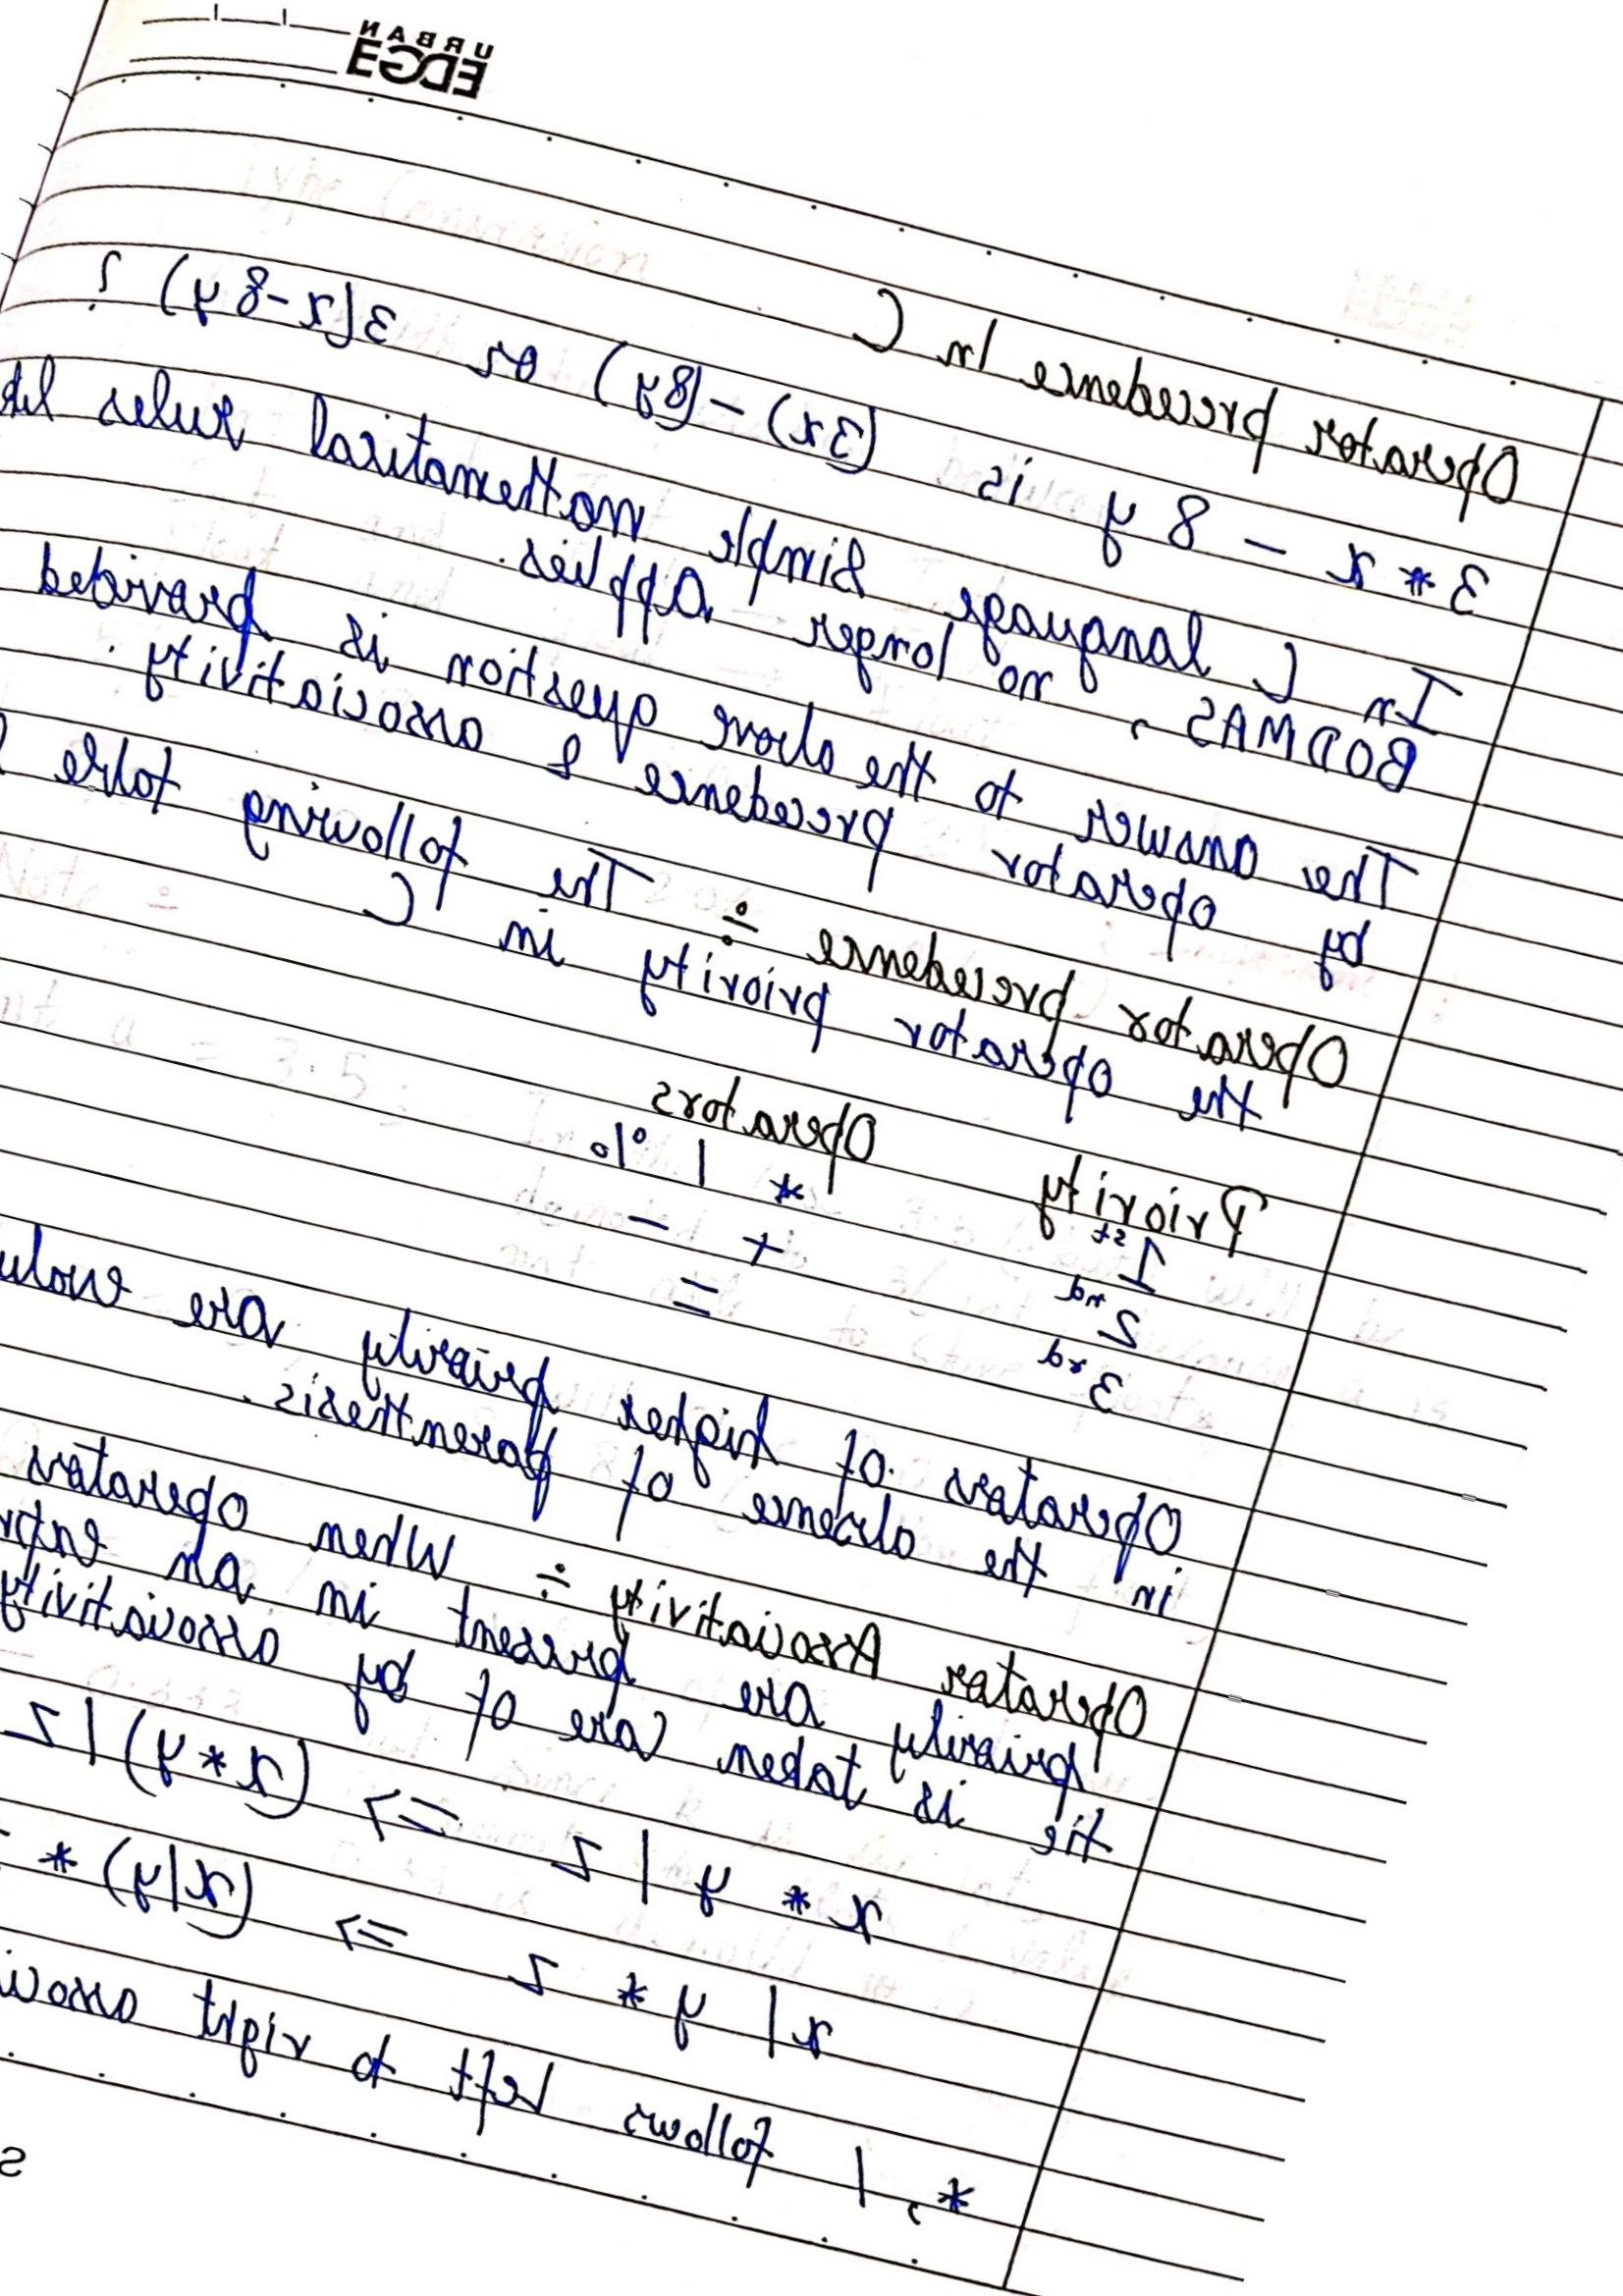 URBAN
EDGE
Operator precedence In C
3 * x - 8 y is (3x) - (8y) or 3(x-8y) ?
In C language simple mathematical rules
BODMAS, no longer Applies.
The answer to the above question is provided
by operator precedence & associativity.
Operator precedence ÷ The following table
the operator priority in C
Priority Operators
1st * / %
2nd + -
3rd =
Operators of higher priority are
in the absence of parenthesis.
Operator Associativity ÷ When Operators
priority are present in an
tie is taken care of by associativity
x * y / z => (x*y) / z
x / y * z => (x/y) *
*, / follows left to right